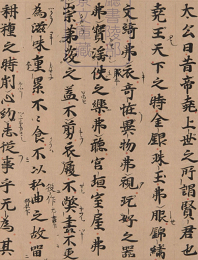 太公曰昔帝堯上世之所謂賢君也
堯王天下之時金銀珠玉弗服錦繡
文綺弗衣奇怪異物弗視玩好之器
弗寶淫佚之樂弗聽宮垣室屋弗
崇茅茨之蓋不剪衣履不弊盡不更
為滋味重累不食不以私曲之故留
耕種之時削心約志從事乎無為其